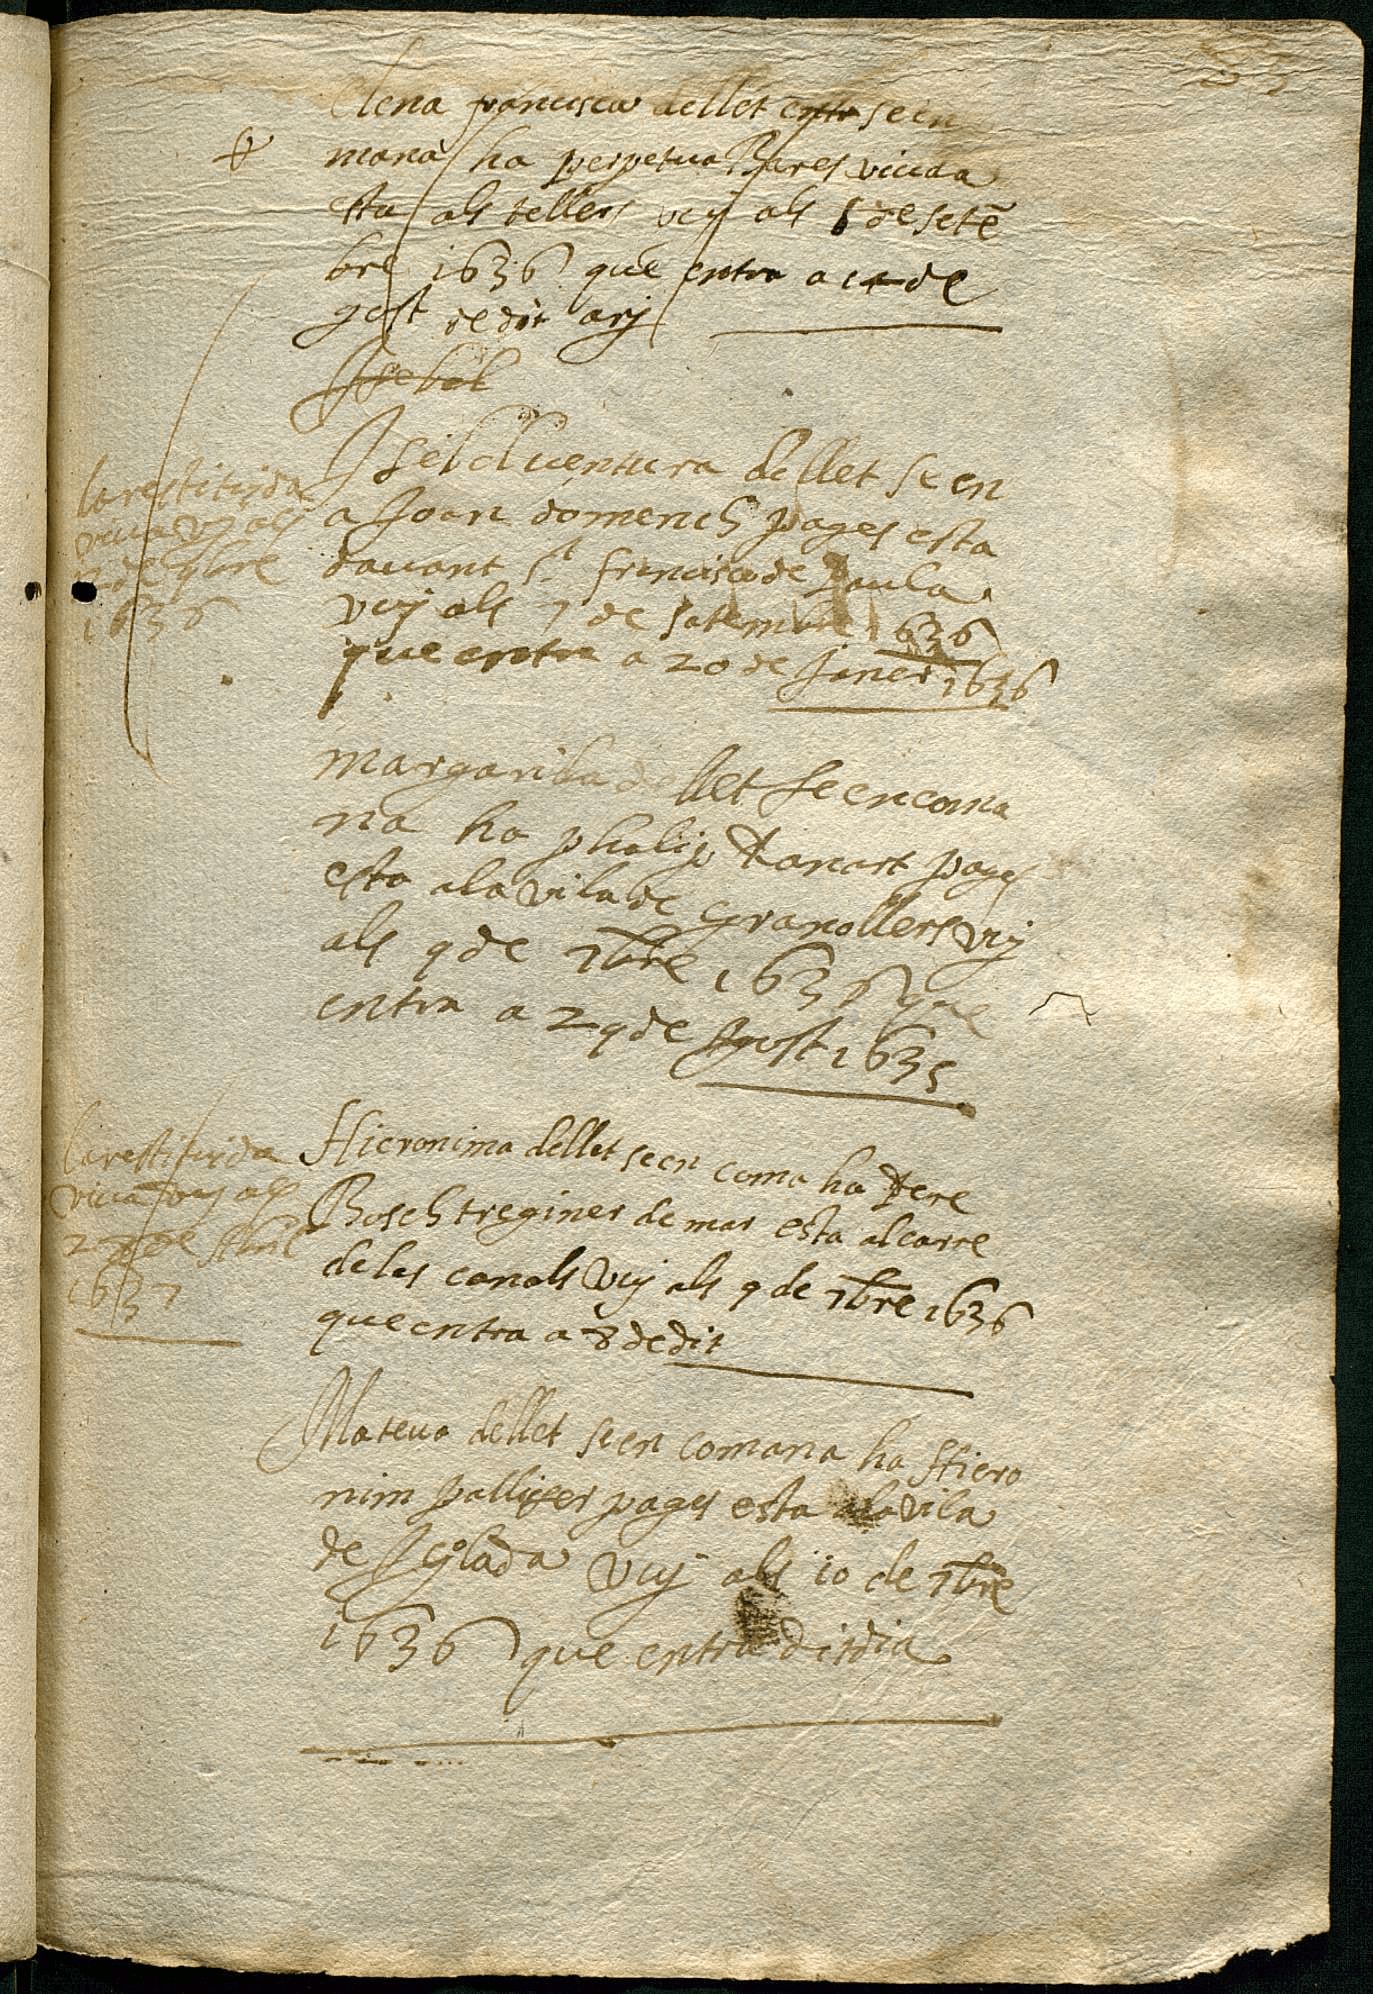 Elena francisca dellet entr seen
mana ha perpetua Bares viuda
esta als tellers vuy als 5 de setē
bre 1636 que entra a 14 de
gost de dit any
Isebel
Isebel ventura dellet seen
a Joan domench pages esta
davant st francisco de Paula
vuy als 7 de setembre 1636
que entra a 20 de Janer 1636
la restituida
viva vuy als
de 9bre
1636
margarida dellet se encoma
na ha phelip pages
esta ala vila de Granollers vuy
als 9 de 7bre 1636 que
entra a 29 de Agost 1635
Hieronima dellet seen coma ha Pere
Bosch treginer de mar esta al carre
de les canals vuy als 9 de 7bre 1636
que entra a 8 de dit
la restituida
viva vuy als
27 de Abril
1637
Mateua dellet seen comana ha Hiero
nim pallisser pages esta ala vila
de Igolada vuy als 10 de 7bre
1636 que entra dit dia